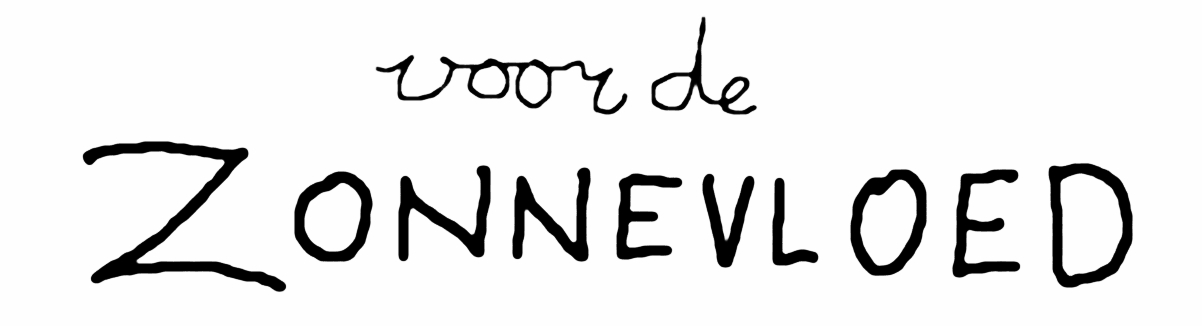 voor de
ZONNEVLOED